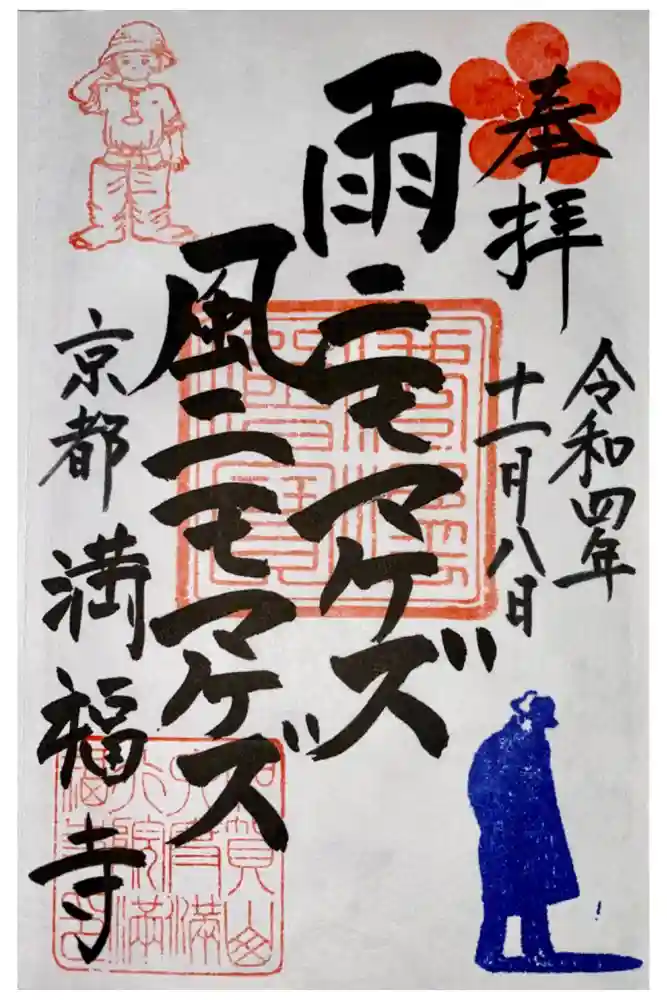 奉拝
令和四年
十一月八日
雨ニモマケズ
風ニモマケズ
京都
満福寺